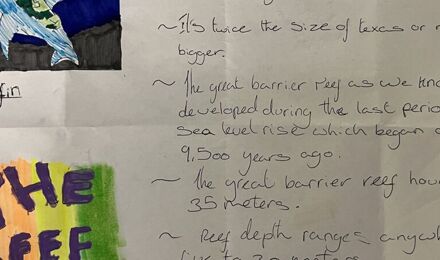 ~ It's twice the size of texas or
bigger.
~ The great barrier reef as we
developed during the last
sea level rise which began
9,500 years ago.
~ The great barrier reef
35 meters.
~ Reef depth ranges
THE
REEF